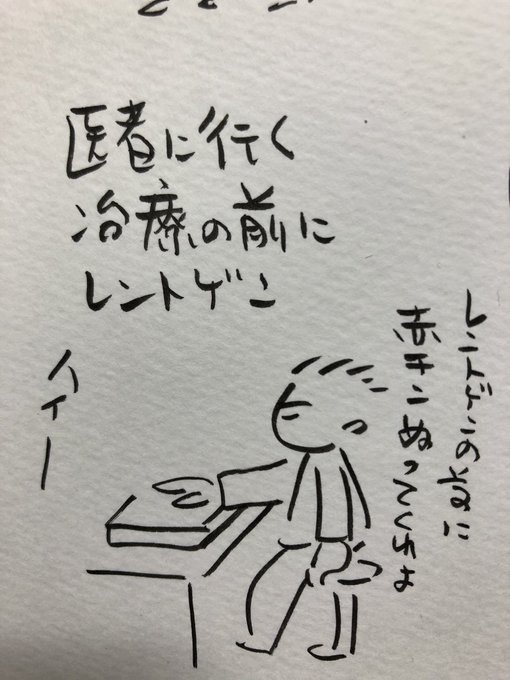 医者に行く
治療の前に
レントゲン
レントゲンの前に
赤チンぬってくれよ
ハイー